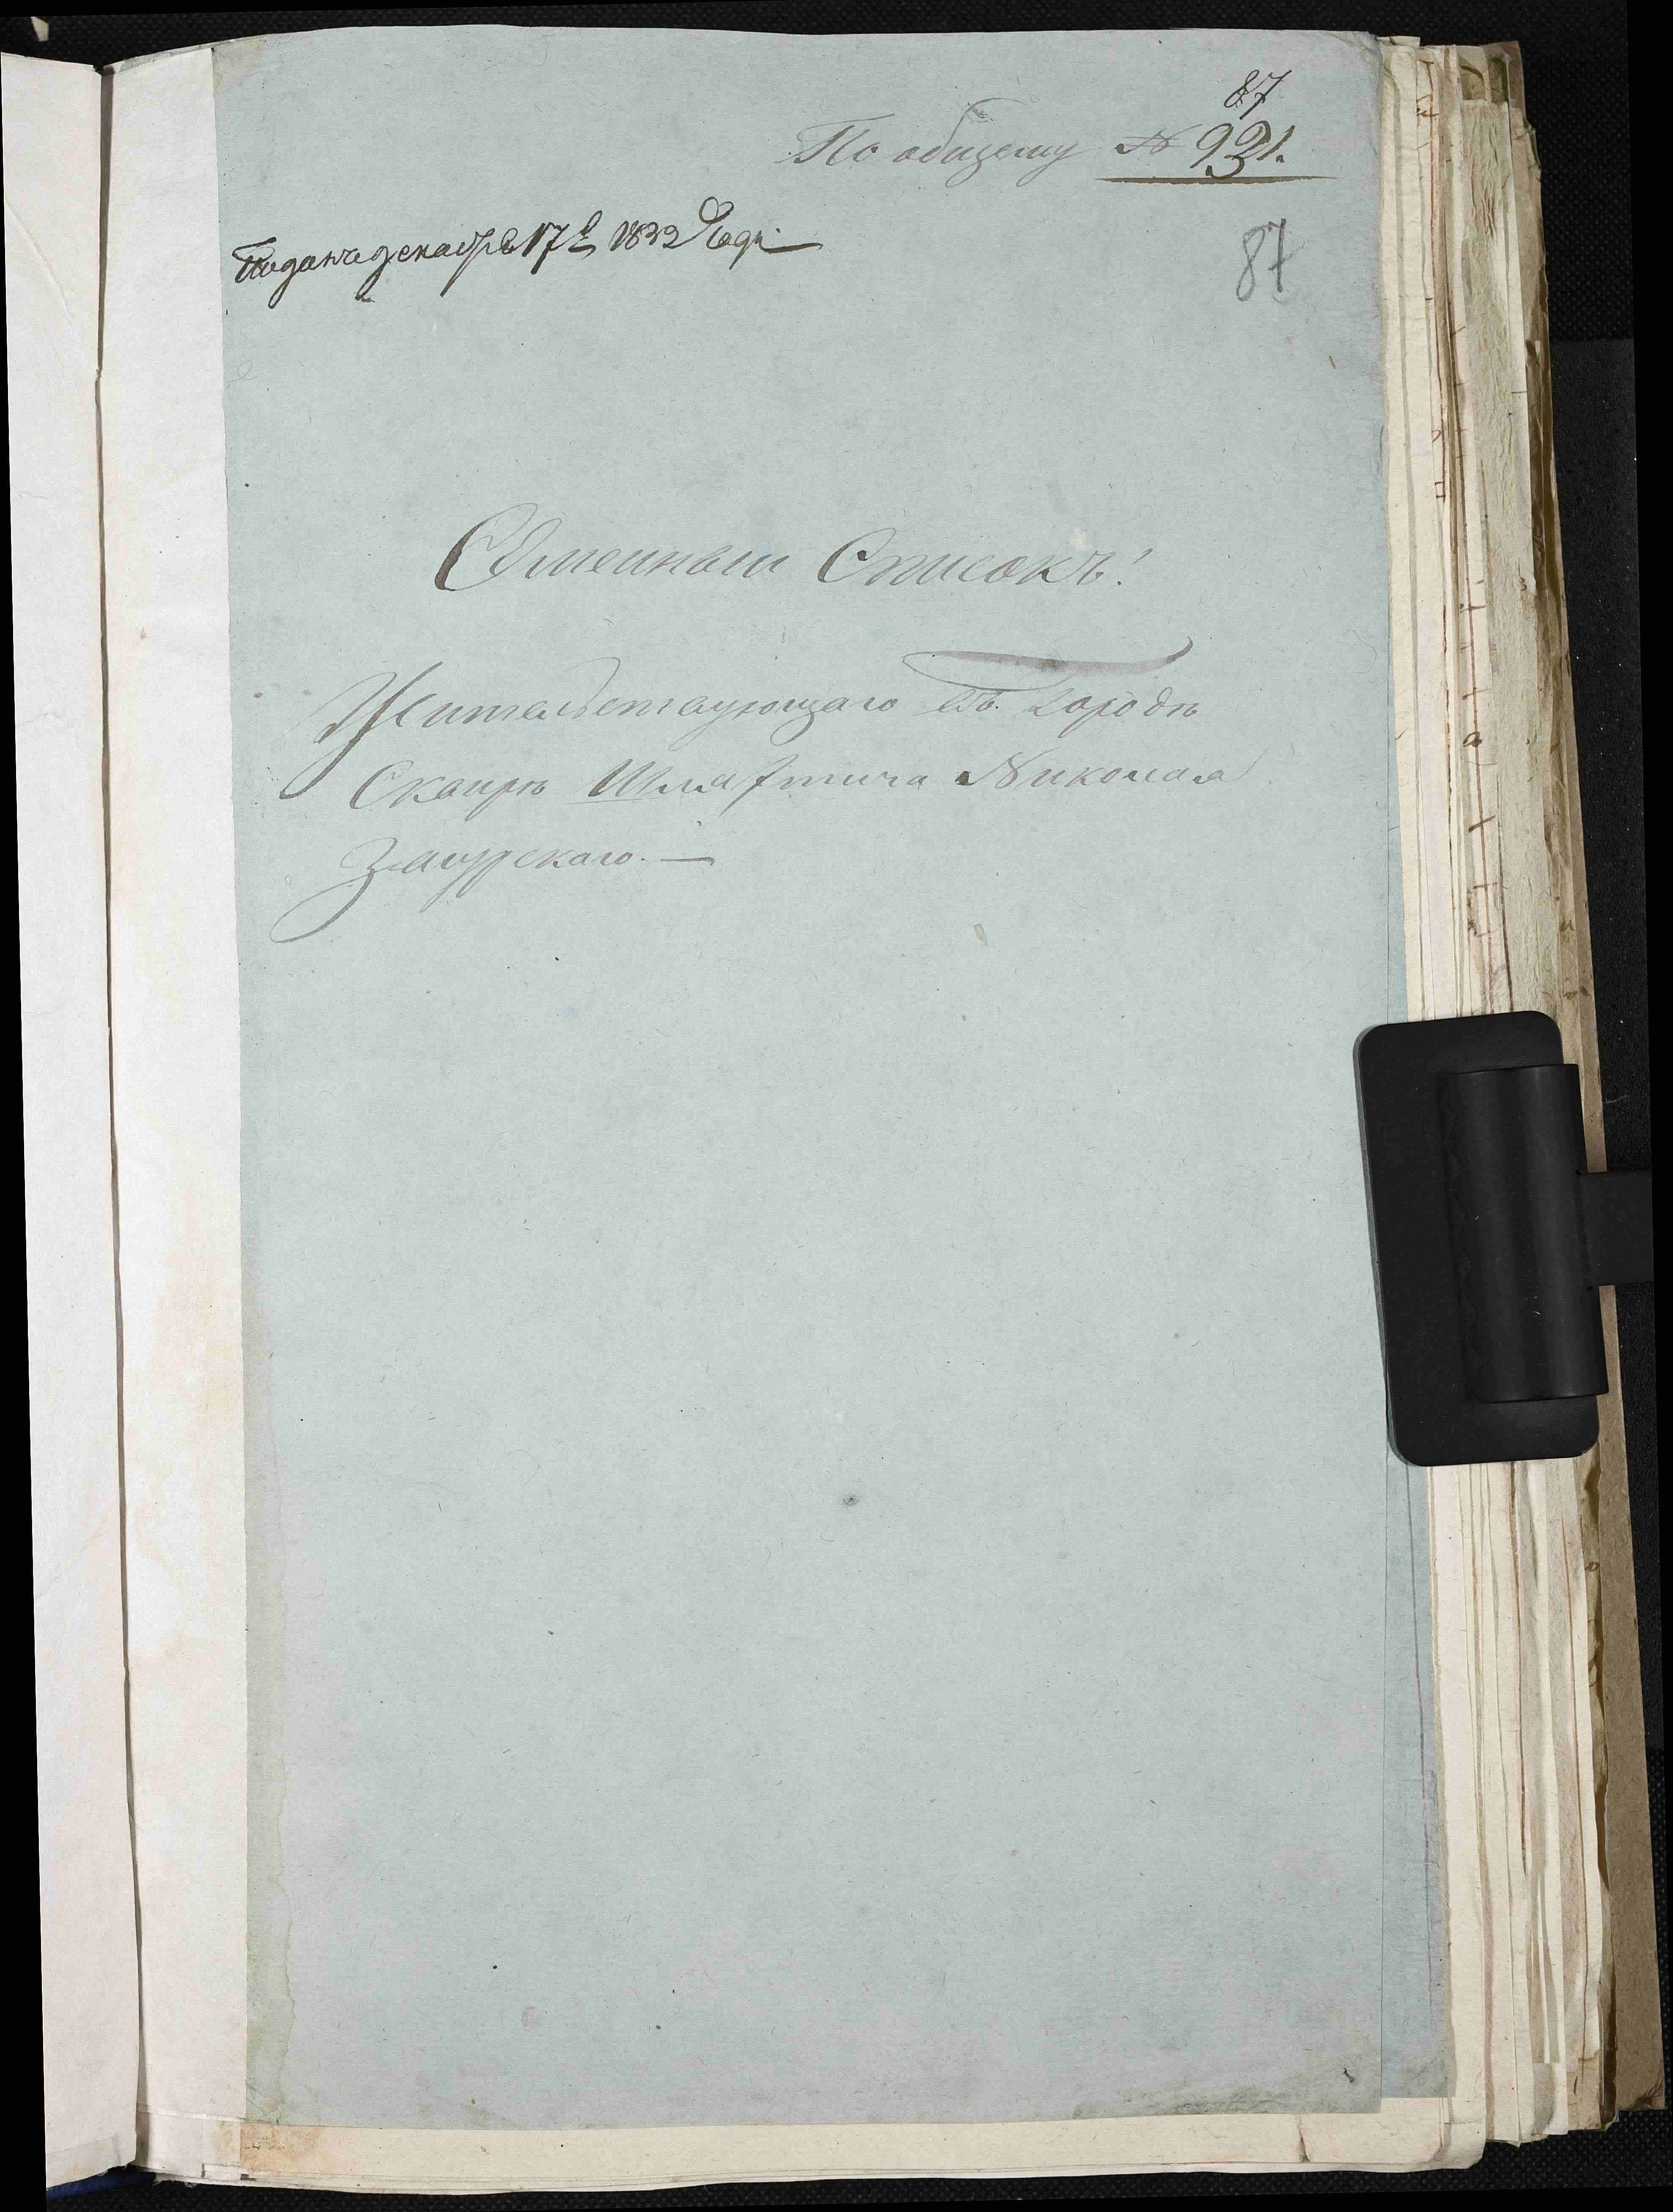 87
По общему № 931.
Поданъ декабря 17го 1832 Года
87
Именный Списокъ!
Жительствующаго въ городѣ
Сквирѣ Шляхтича Николая
Загурскаго. —